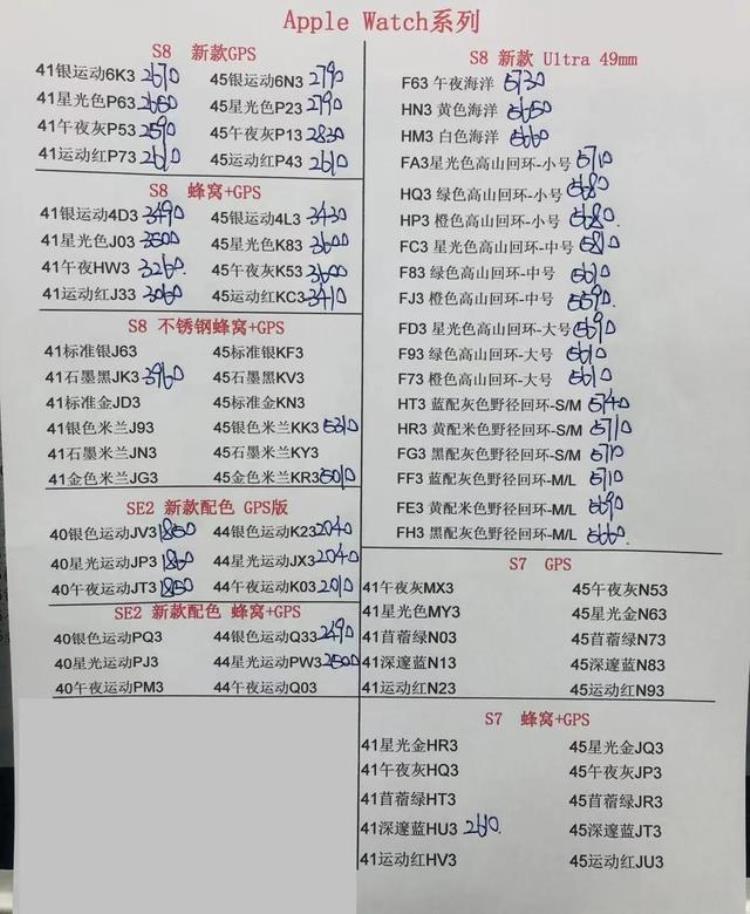 Apple Watch系列
S8 新款GPS
41银运动6K3 2670 45银运动6N3 2790
41星光色P63 2660 45星光色P23 2790
41午夜灰P53 2590 45午夜灰P13 2830
41运动红P73 2610 45运动红P43 2610
S8 蜂窝+GPS
41银运动4D3 3490 45银运动4L3 3430
41星光色J03 3500 45星光色K83 3600
41午夜HW3 3260. 45午夜灰K53 3600
41运动红J33 3060 45运动红KC3 3410
S8 不锈钢蜂窝+GPS
41标准银J63 45标准银KF3
41石墨黑JK3 3960 45石墨黑KV3
41标准金JD3 45标准金KN3
41银色米兰J93 45银色米兰KK3 5310
41石墨米兰JN3 45石墨米兰KY3
41金色米兰JG3 45金色米兰KR3 5010
SE2 新款配色 GPS版
40银色运动JV3 1850 44银色运动K23 2040
40星光运动JP3 1860 44星光运动JX3 2040
40午夜运动JT3 1850 44午夜运动K03 2010
SE2 新款配色 蜂窝+GPS
40银色运动PQ3 44银色运动Q33 2490
40星光运动PJ3 44星光运动PW3 2500
40午夜运动PM3 44午夜运动Q03
S8 新款 Ultra 49mm
F63 午夜海洋 5730
HN3 黄色海洋 5650
HM3 白色海洋 5660
FA3星光色高山回环-小号 5710
HQ3 绿色高山回环-小号 5680
HP3 橙色高山回环-小号 5680.
FC3 星光色高山回环-中号 5810
F83 绿色高山回环-中号 5610
FJ3 橙色高山回环-中号 5590.
FD3 星光色高山回环-大号 5690
F93 绿色高山回环-大号 5610
F73 橙色高山回环-大号 5610
HT3 蓝配灰色野径回环-S/M 5740
HR3 黄配米色野径回环-S/M 5710
FG3 黑配灰色野径回环-S/M 5710
FF3 蓝配灰色野径回环-M/L 5710
FE3 黄配米色野径回环-M/L 5690
FH3 黑配灰色野径回环-M/L 5660.
S7 GPS
41午夜灰MX3 45午夜灰N53
41星光色MY3 45星光金N63
41苜蓿绿N03 45苜蓿绿N73
41深邃蓝N13 45深邃蓝N83
41运动红N23 45运动红N93
S7 蜂窝+GPS
41星光金HR3 45星光金JQ3
41午夜灰HQ3 45午夜灰JP3
41苜蓿绿HT3 45苜蓿绿JR3
41深邃蓝HU3 2610. 45深邃蓝JT3
41运动红HV3 45运动红JU3